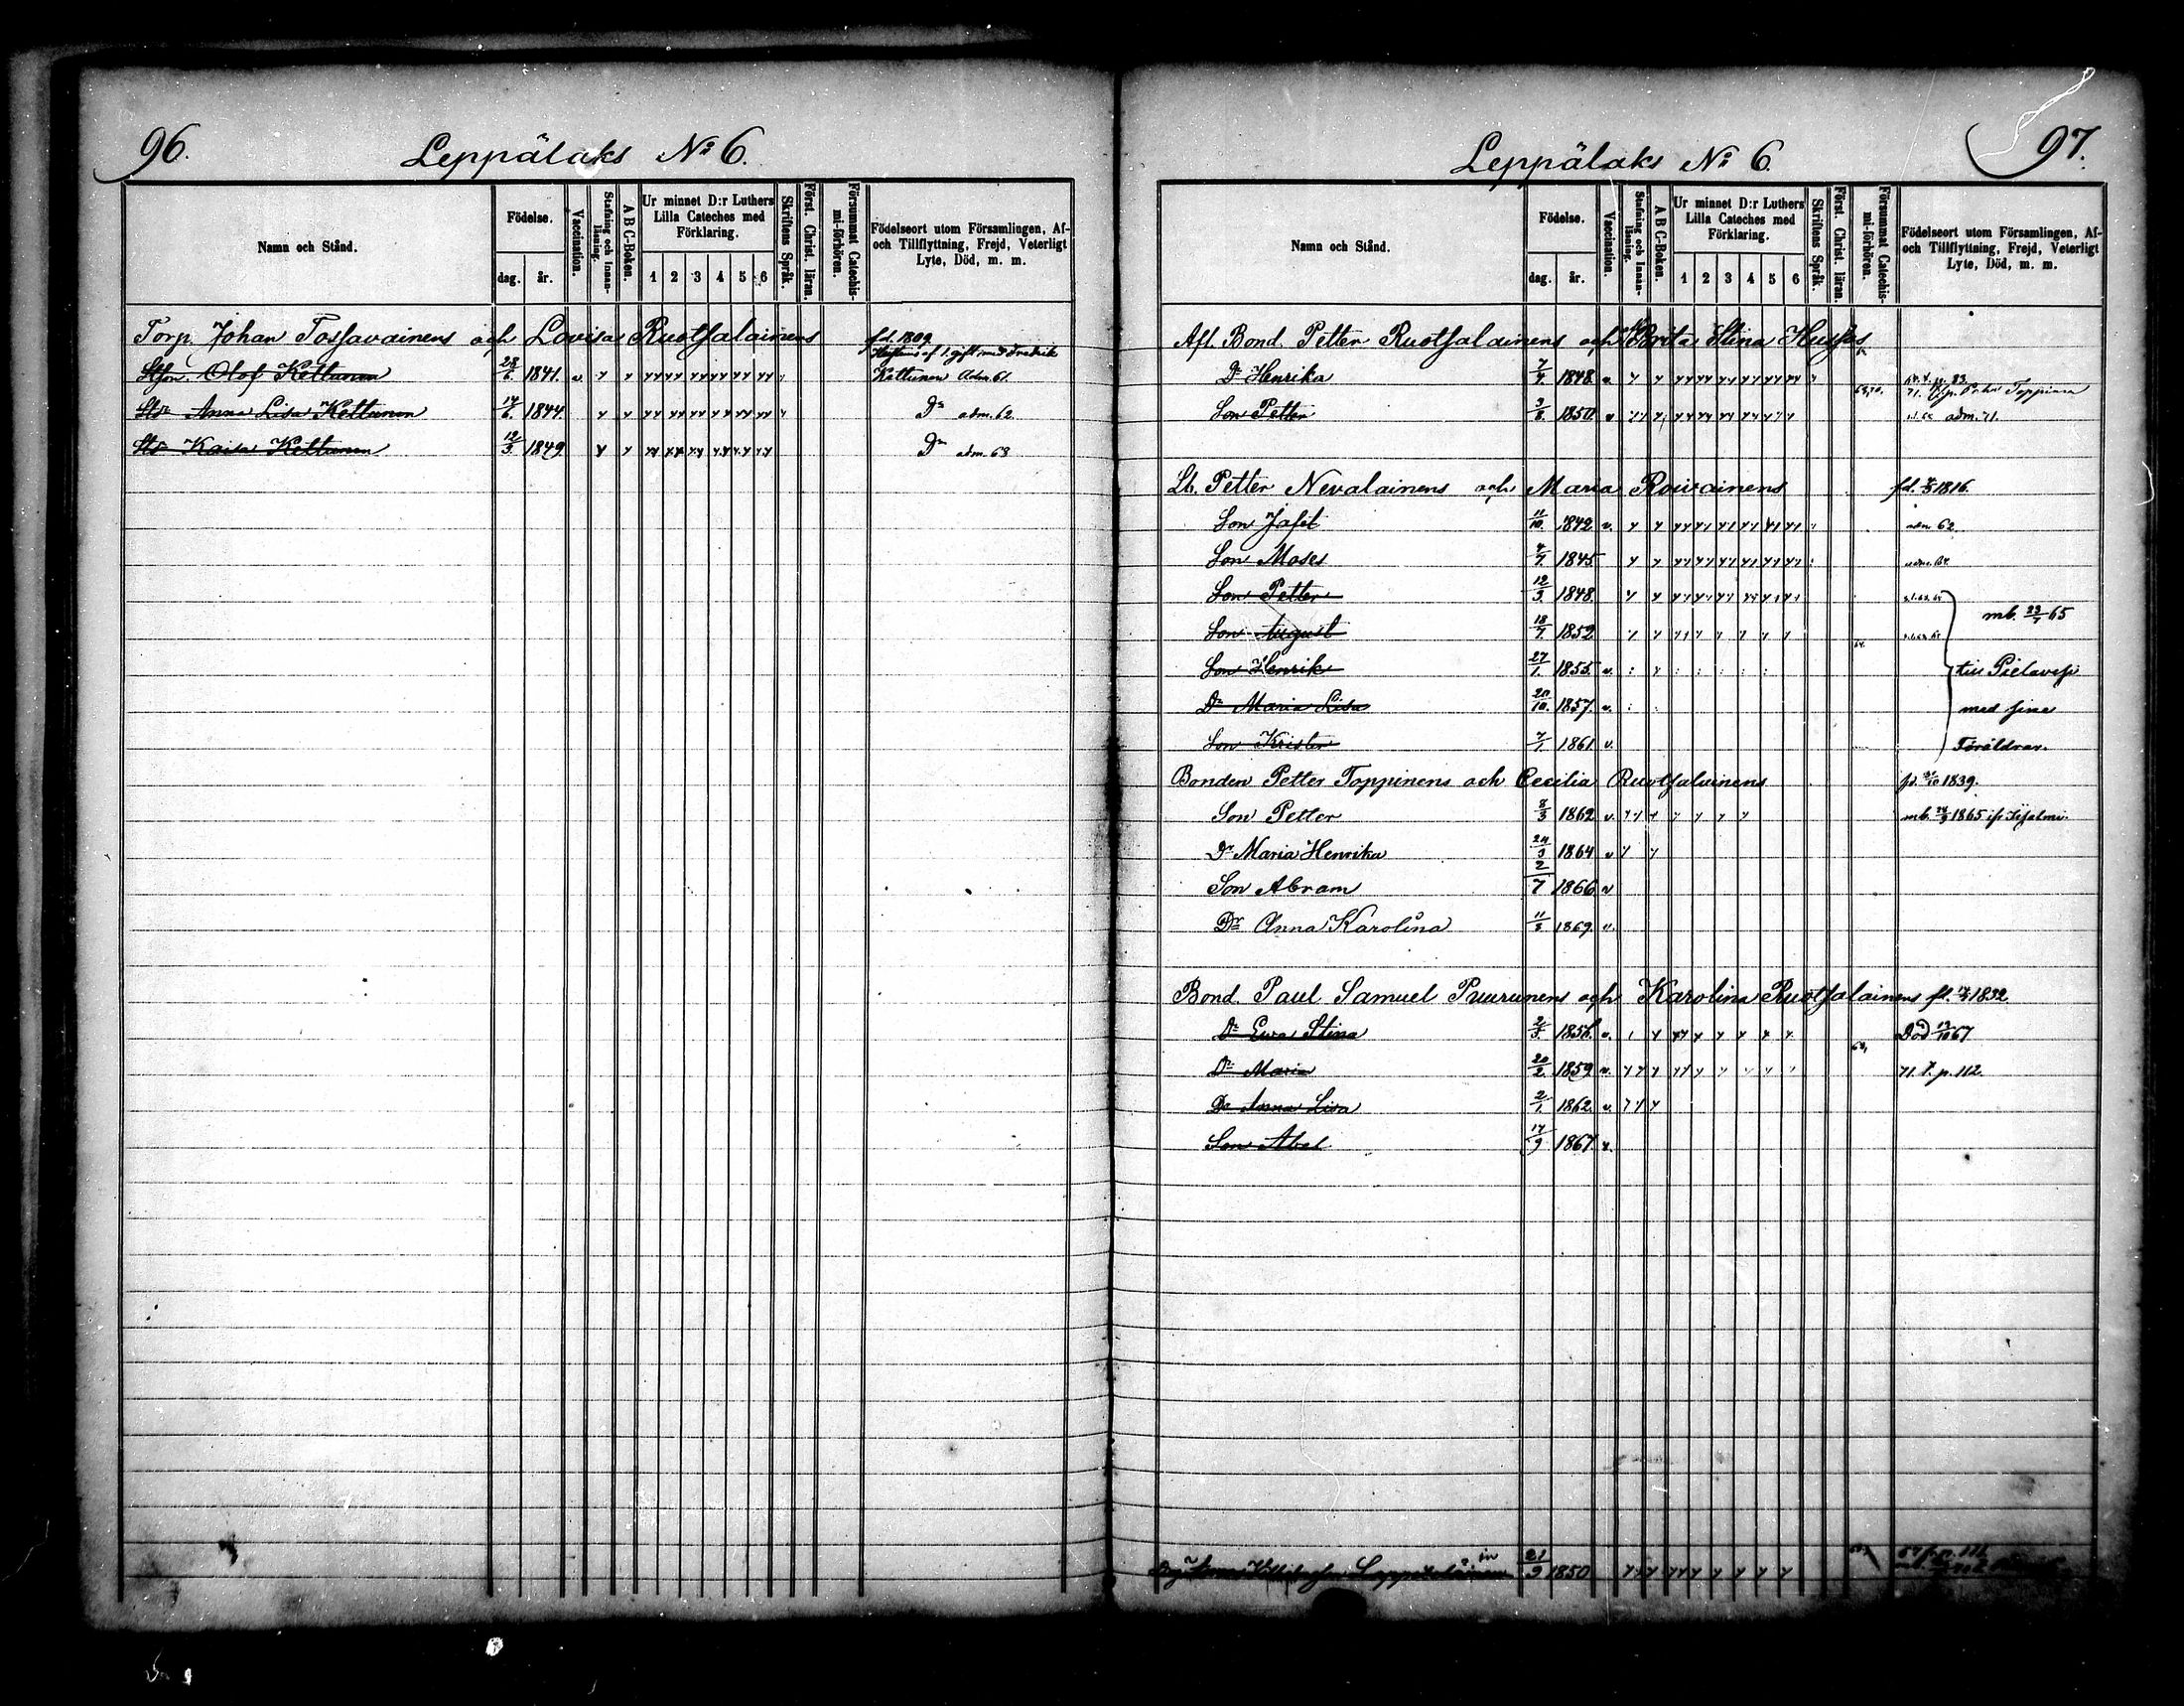 96.
Leppälaks No 6.
Namn och Stånd.
Födelse.
dag.
år.
Vaccination.
Stafning och Innanläsning.
A B C-Boken.
Ur minnet D:r Luthers Lilla Cateches med Förklaring.
1 2 3 4 5 6
Skriftens Språk.
Föret. Christ. läran.
Försummat Catechismi-förhören.
Födelseort utom Församlingen, Af- och Tillflyttning, Frejd, Veterligt Lyte, Död, m. m.
Torp. Johan Tossavainens och Lovisa Ruotsalainens fd. 1809
Stson. Olof Kettunen 28/6 1841. v af 1. gift med Fredrik Kettunen Adm. 61.
Std Anna Lisa Kettunen 17/6 1844. Do adm. 62
Std Kaisa Kettunen 12/3 1849 Do adm. 63
97.
Leppälaks No 6.
Namn och Stånd.
Födelse.
dag.
år.
Vaccination.
Stafning och Innanläsning.
A B C-Boken.
Ur minnet D:r Luthers Lilla Cateches med Förklaring.
1 2 3 4 5 6
Skriftens Språk.
Föret. Christ. läran.
Försummat Catechismi-förhören.
Födelseort utom Församlingen, Af- och Tillflyttning, Frejd, Veterligt Lyte, Död, m. m.
Afl. Bond. Petter Ruotsalainens och Brita Stina Huskos
Dr Henrika 1848. v 71. Petter Toppinen
Son Petter 1850 v adm. 71.
Lh. Petter Nevalainens och Maria Rouvainens fd. 1816.
Son Jafet 11/10. 1842 v. adm 62
Son Moses 4/7. 1845 adm. 64
Son Petter 12/3. 1848. mb. 23/7 65
Son August 18/7. 1852
Son Henrik 27/1. 1855. v. till Pielaves
Dr Maria Lisa 20/10. 1857. v. med sina
Son Krister 7/1 1861 v. Föräldrar.
Bonden Petter Toppinens och Cecilia Ruotsalainens fd. 1839.
Son Petter 8/3 1862 v. mb. 1865 ifr Iisalmi.
Dr Maria Henrika 24/3 1864 v
Son Abram 2/7 1866 v
Dr Anna Karolina 11/3 1869. v.
Bond. Paul Samuel Puurunens och Karolina Ruotsalainens fd. 1832
Dr Ewa Stina v. Död 67
Dr Maria 20/2. 1859 v. 71. T. p. 112.
Dr Anna Lisa 2/1. 1862. v.
Son Abel 17/9 1867 v.
21/9 1850